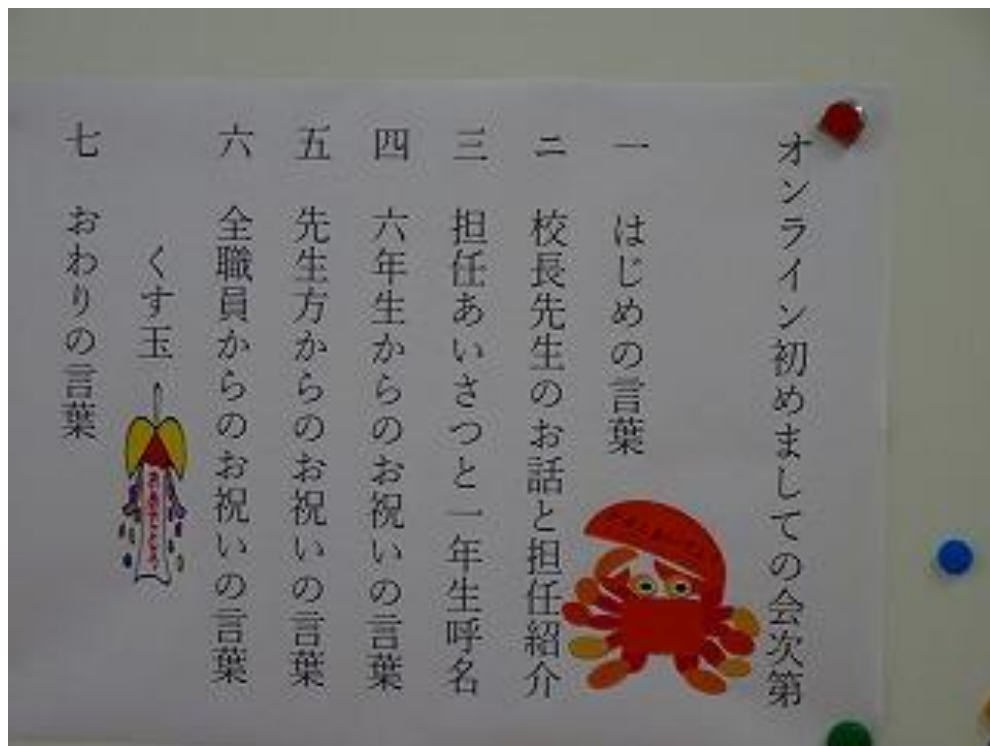 オンライン初めましての会次第
一 はじめの言葉
二 校長先生のお話と担任紹介
三 担任あいさつと一年生呼名
四 六年生からのお祝いの言葉
五 先生方からのお祝いの言葉
六 全職員からのお祝いの言葉
くす玉
おめでとう
七 おわりの言葉